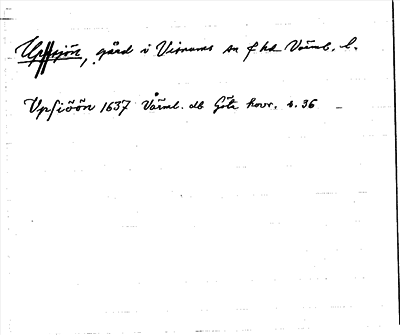 Uppsjön, gård i Visnums sn f hd Värml. l.
Vpsiöön 1637 Värml. db Göta hovr. s. 36